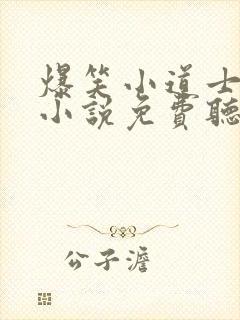 爆笑小道士
小說免費聽
公子澹